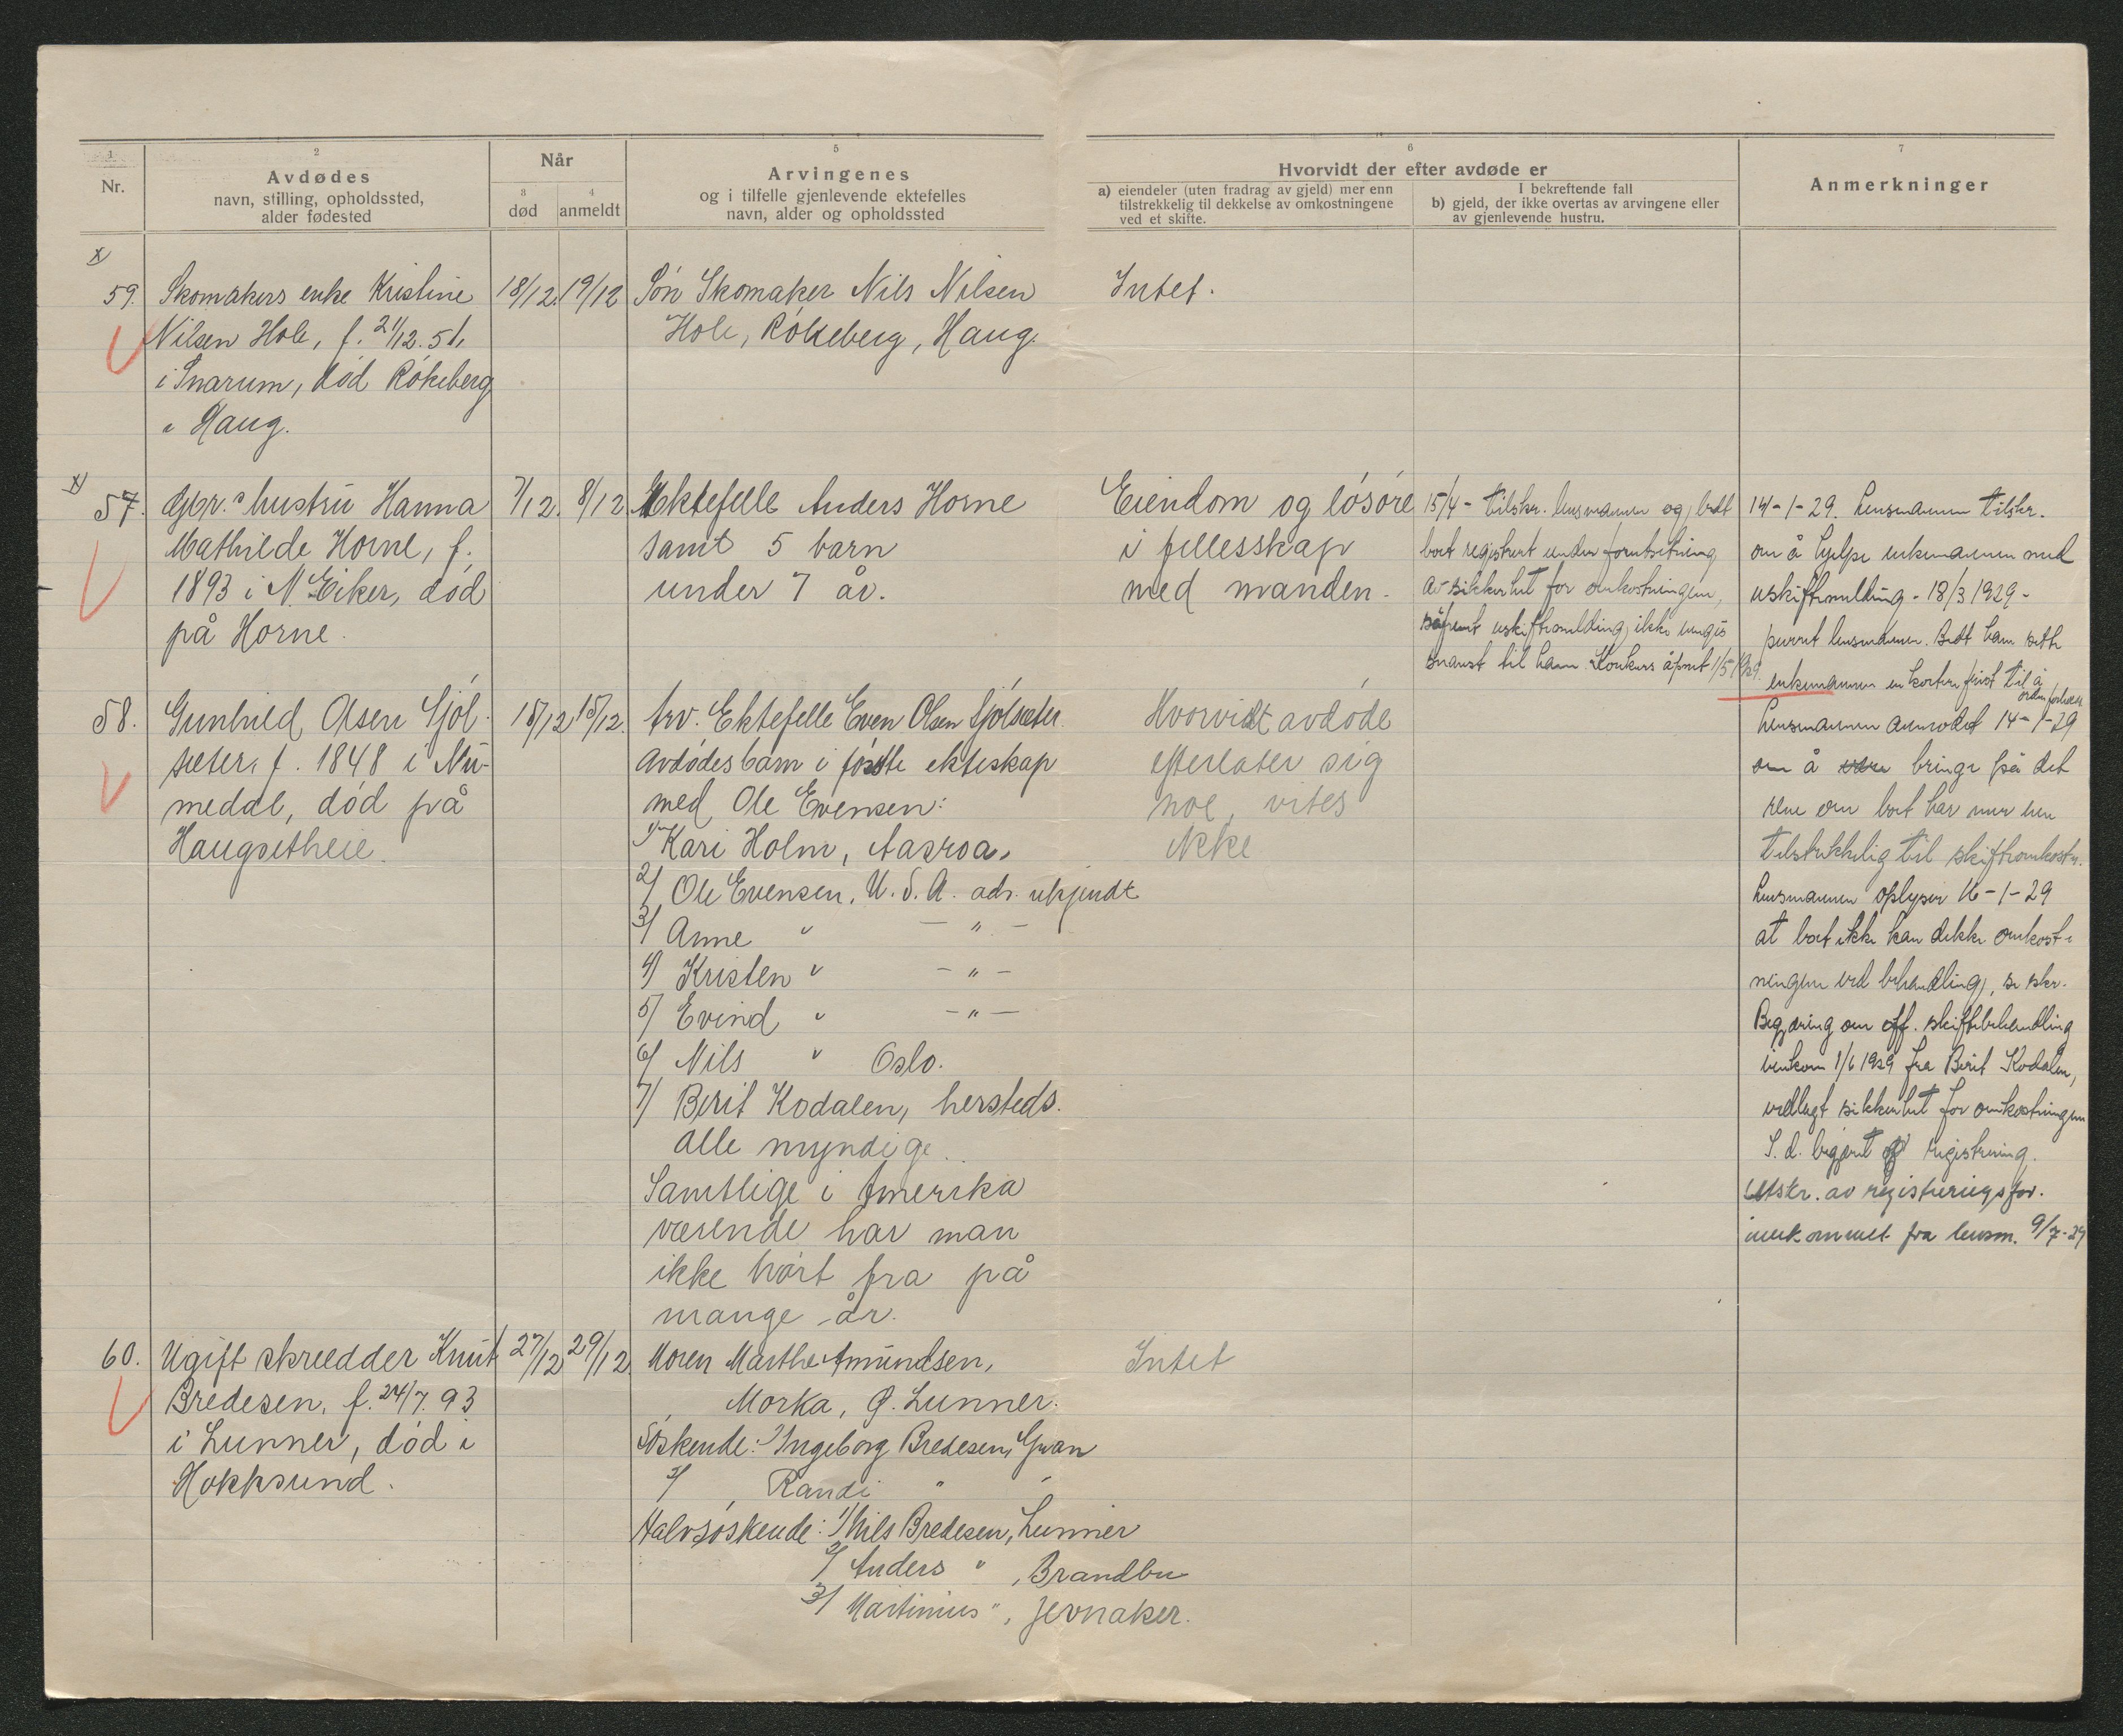 1
Nr.
2
Avdødes
navn, stilling, opholdssted,
alder fødested
Når
3
død
4
anmeldt
5
Arvingenes
og i tilfelle gjenlevende ektefelles
navn, alder og opholdssted
6
Hvorvidt der efter avdøde er
a) eiendeler (uten fradrag av gjeld) mer enn
tilstrekkelig til dekkelse av omkostningene
ved et skifte.
I bekreftende fall
b) gjeld, der ikke overtas av arvingene eller
av gjenlevende hustru.
7
Anmerkninger
x)
59.
Skomakers enke Kristine
Nilsen Hole, f. 21/12.51.
i Snarum, død Røkeberg
i Haug.
18/12. 19/12
Søn Skomaker Nils Nilsen
Hole, Røkeberg, Haug.
Intet.
x)
57.
Gbr.s hustru Hanna
Mathilde Horne, f.
1893 i N. Eiker, død
på Horne.
7/12. 8/12
Ektefelle Anders Horne
samt 5 barn
under 7 år.
Eiendom og løsøre
i fellesskap
med manden.
15/4 - tilskr. lensmannen og bedt
boet registrert under forutsetning
av sikkerhet for omkostningene,
såfremt uskiftemelding ikke inngis
snarest til ham. Konkurs åpnet 1/5 1929.
14-1-29. Lensmannen tilskr.
om å hjelpe enkemannen med
uskiftemelding - 18/3 1929 -
purret lensmannen. Bedt ham sette
enkemannen en kortere frist til å
ordne forholdet
58.
Gunhild Olsen Sjøl-
seter, f. 1848 i Nu-
medal, død på
Haugsetheie.
15/12 15/12.
Arv. Ektefelle Even Olsen Sjølseter
Avdødes barn i første ekteskap
med Ole Evensen:
1/ Kari Holm, Aasroa,
2/ Ole Evensen, U.S.A. adr. ukjendt
3/ Anne " - " -
4/ Kristen " - " -
5/ Evind " - " -
6/ Nils " Oslo.
7/ Berit Kodalen, hersteds.
alle myndige.
Samtlige i Amerika
værende har man
ikke hørt fra på
mange år.
Hvorvidt avdøde
efterlater sig
noe, vites
ikke
Lensmannen anmodet 14-1-29
om å bringe på det
rene om boet har mer enn
tilstrekkelig til skifteomkostn.
Lensmannen oplyser 16-1-29
at boet ikke kan dekke omkost-
ningene ved behandling, se skr.
Begjæring om off. skiftebehandling
innkom 1/6 1929 fra Berit Kodalen,
vedlagt sikkerhet for omkostningene
S.d. begjært registrering.
Utskr. av registreringsfor.
innkommet fra lensm. 9/7-29
60.
Ugift skredder Knut
Bredesen, f. 24/7. 93
i Lunner, død i
Hokksund.
27/12 29/12.
Moren Marthe Amundsen,
Morka, Ø. Lunner.
Søskende: 1/ Ingeborg Bredesen, Gran
2/ Randi " "
Halvsøskende: 1/ Nils Bredesen, Lunner
2/ Anders " , Brandbu
3/ Martinius " , Jevnaker.
Intet